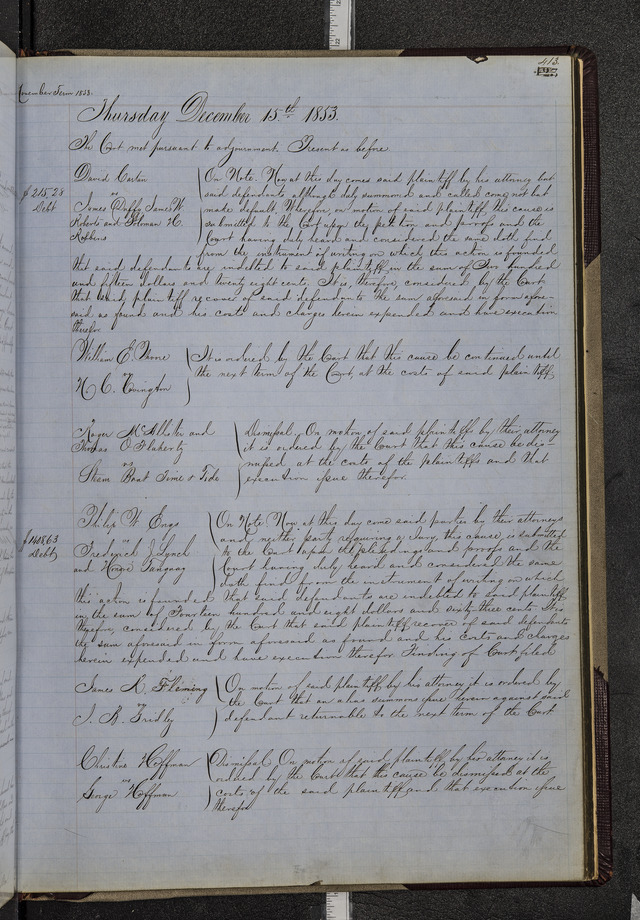 413
November Term 1853.
Thursday December 15th 1853.
The Court met pursuant to adjournment. Present as before
David Carton
vs
James Duffy James W.
Roberts and Tilman H.
Robbins
$215.28
Debt
On Note. Now at this day comes said plaintiff by his attorney but
said defendants although duly summoned and called come not but
made default. Wherefore, on motion of said plaintiff, this cause is
submitted to the Court upon the petition and proofs and the
Court having duly heard and considered the same doth find
from the instrument of writing on which this action is founded
that said defendants are indebted to said plaintiff in the sum of Two hundred
and fifteen dollars and twenty eight cents. It is, therefore, considered by the Court
that said plaintiff recover of said defendants the sum aforesaid in form afore-
said as found and his costs and charges herein expended and have execution
therefor
William E. Moore
vs
H C. Covington
It is ordered by the Court that this cause be continued until
the next term of the Court, at the costs of said plaintiff
Roger McAllister and
Thomas O'Flaherty
vs
Steam Boat Time & Tide
Dismissal. On motion of said plaintiffs by their attorney
it is ordered by the Court that this cause be dis-
missed at the costs of the plaintiffs and that
execution issue therefor
Philip W. Engs
vs
Frederick J. Lynch
and Horace Tanguay
$1408.63
Debt
On Note. Now at this day come said parties by their attorneys
and neither party requiring a Jury, this cause, is submitted
to the Court upon the pleadings and proofs and the
Court having duly heard and considered the same
doth find from the instrument of writing on which
this action is founded that said defendants are indebted to said plaintiff
in the sum of Fourteen hundred and eight dollars and sixty three cents. It is
therefore, considered by the Court that said plaintiff recover of said defendants
the sum aforesaid in form aforesaid as found and his costs and charges
herein expended and have execution therefor. Finding of Court filed
James K. Fleming
vs
J. R. Tridly
On motion of said plaintiff by his attorney it is ordered by
the Court that an alias summons issue herein against said
defendant returnable to the next term of the Court
Christina Hoffman
vs
George Hoffman
Dismissal. On motion of said plaintiff by her attorney it is
ordered by the Court that this cause be dismissed at the
costs of the said plaintiff and that execution issue
therefor